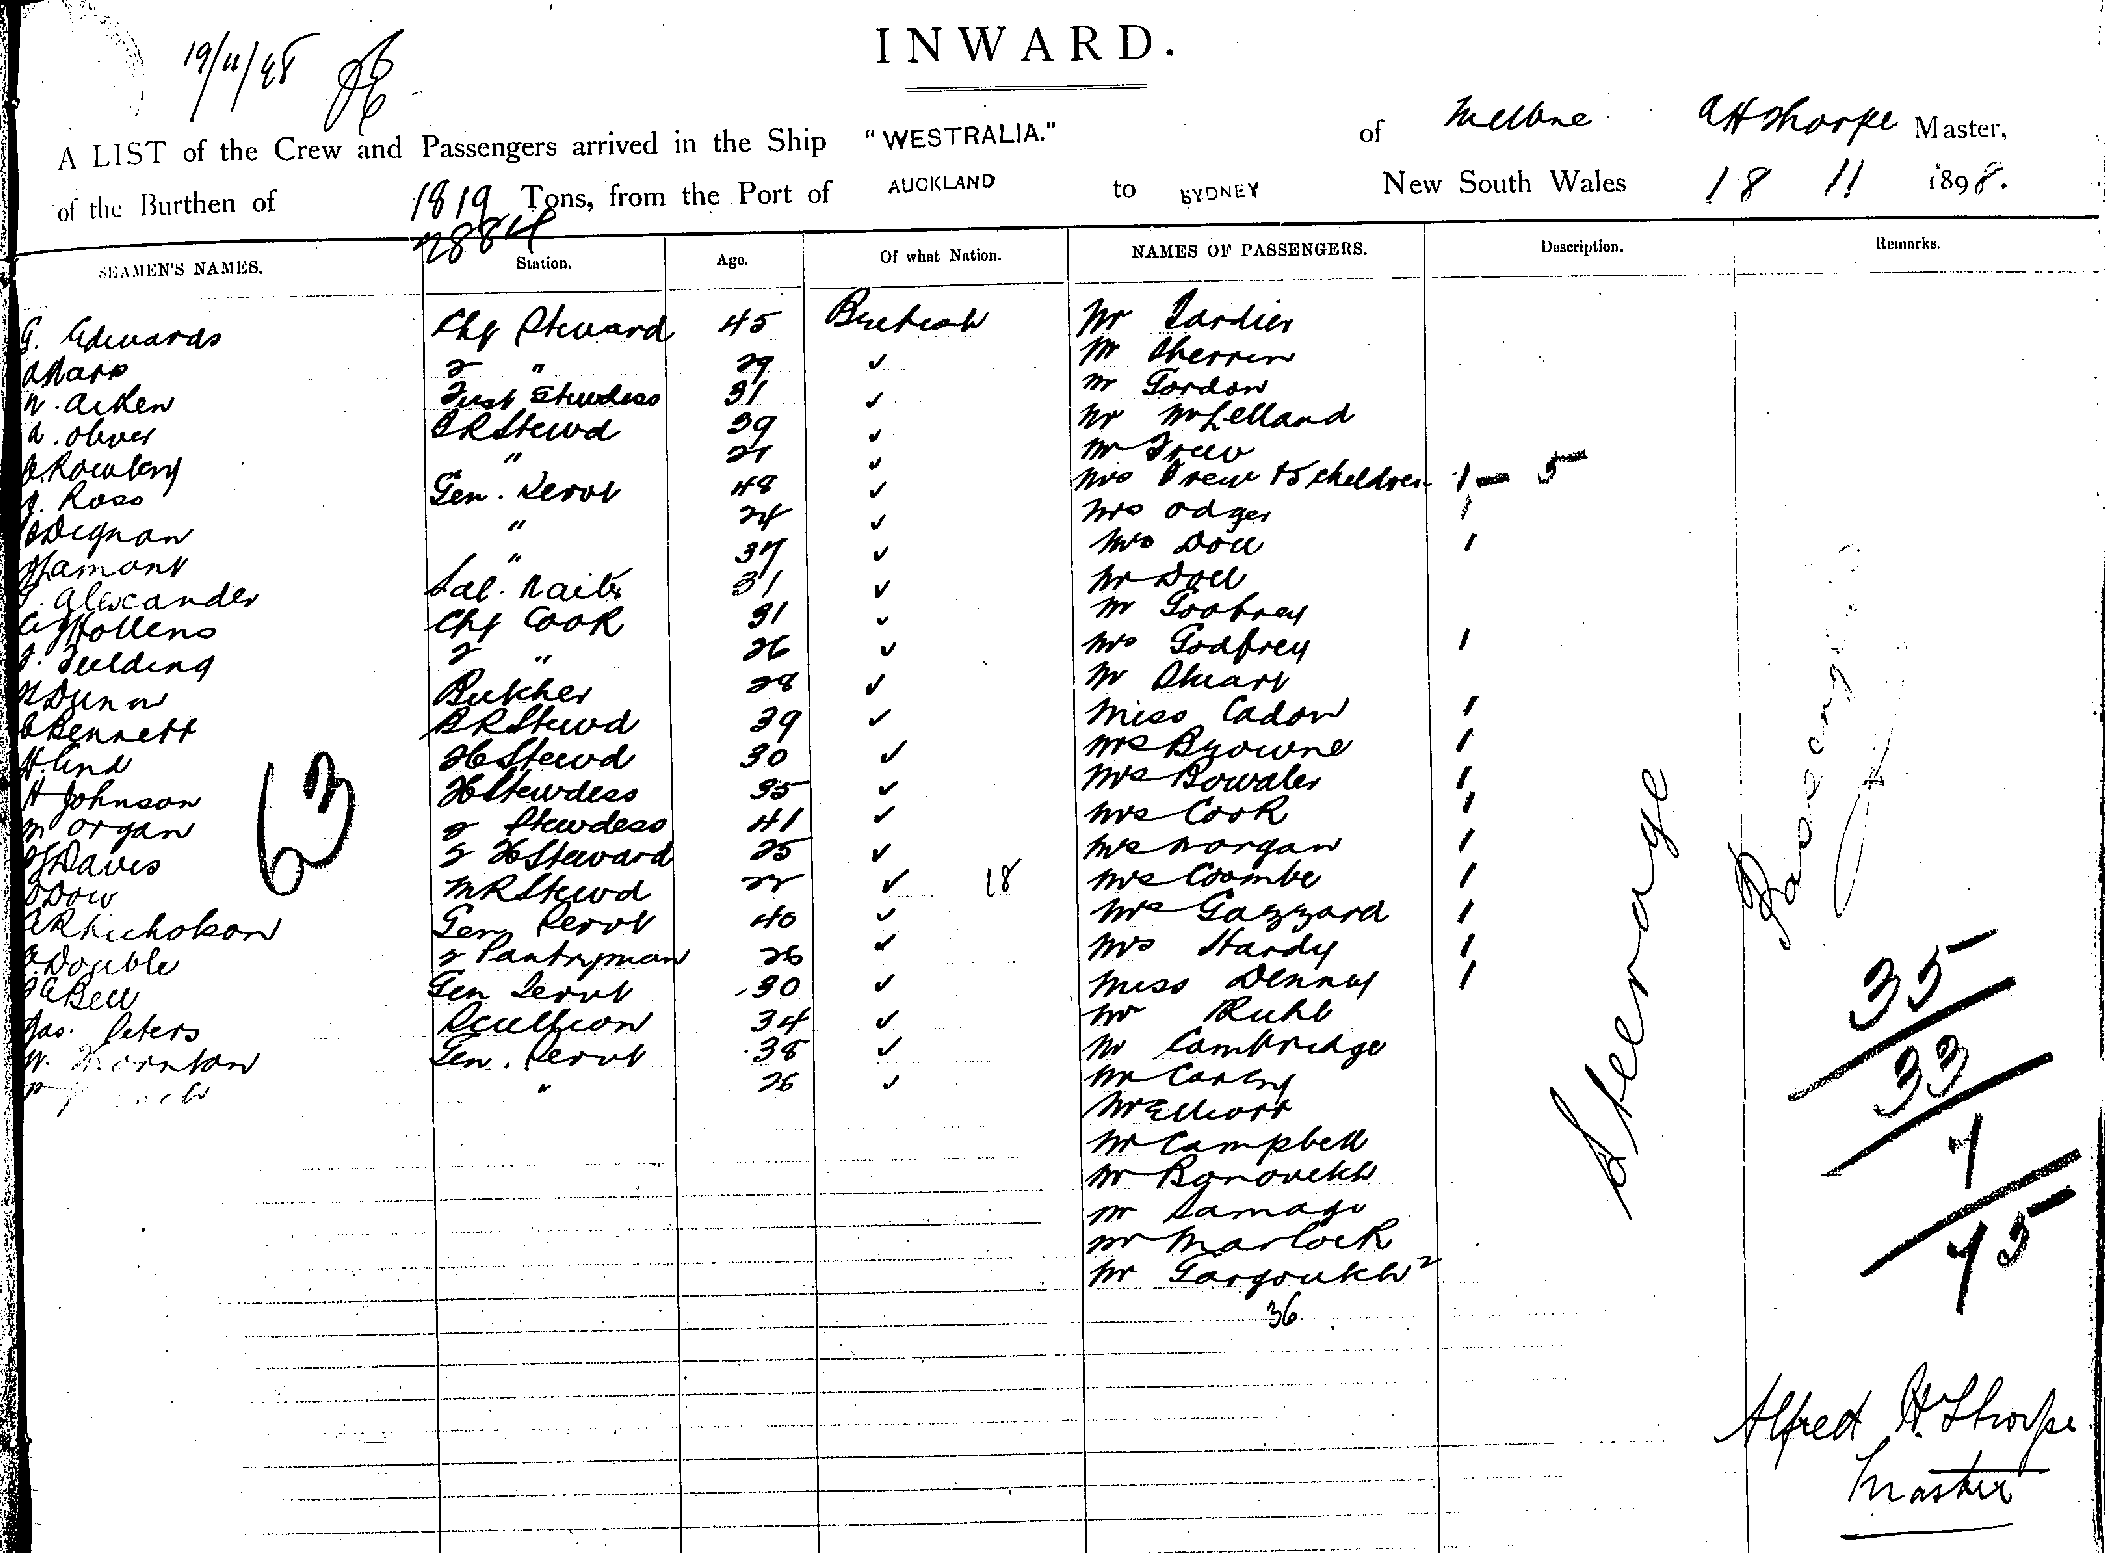 19/11/98
INWARD.
A LIST of the Crew and Passengers arrived in the Ship "WESTRALIA." of Melbne AHThorpe Master,
of the Burthen of 1819 Tons, from the Port of AUCKLAND to SYDNEY New South Wales 18 11 1898.
2884
SEAMEN'S NAMES. Station. Age. Of what Nation. NAMES OF PASSENGERS. Description. Remarks.
G. Edwards Chf Steward 45 British Mr
2 " 29 ✓ Mr Sherrin
Aitken First Stewdess 31 ✓ Mr Gordon
Oliver BRStewd 39 ✓ Mr McLelland
Rowberry " 21 ✓ Mr Trew
J. Ross Gen. Servt 48 ✓ Mrs Trew & 5 children 1 — 5
Dignan " 24 ✓ Mrs Odger 1
Lamont " 37 ✓ Mrs Doll 1
Alexander Sal. Waiter 31 ✓ Mr Doll
Hollens Chf Cook 31 ✓ Mr Godfrey
J. Feilding 2 " 26 ✓ Mrs Godfrey 1
Butcher 28 ✓ Mr Stuart
Bennett BRStewd 39 ✓ Miss Cadon 1
H. Lind FCStewd 30 ✓ Mrs Browne 1
H Johnson FCStewdess 35 ✓ Mrs Bowater 1
M Organ 2 Stewdess 41 ✓ Mrs Cook 1
Davis 2 FCSteward 25 ✓ Mrs Morgan 1
Dow MRStewd 22 ✓ 18 Mrs Coombe 1
Nicholson Gen Servt 40 ✓ Mrs Gazzard 1
Double 2 Pantryman 26 ✓ Mrs Hardy 1
Bell Gen Servt 30 ✓ Miss Denny 1
Jas. Peters Scullion 34 ✓ Mr Ruhl
W. Thornton Gen. Servt 38 ✓ Mr Cambridge
" 26 ✓ Mr Carey
Mr Elliott
Mr Campbell
Mr
Mr Samago
Mr Marlock
Mr
36
63
Steerage
Passengers
35
33
7
75
Alfred H. Thorpe
Master